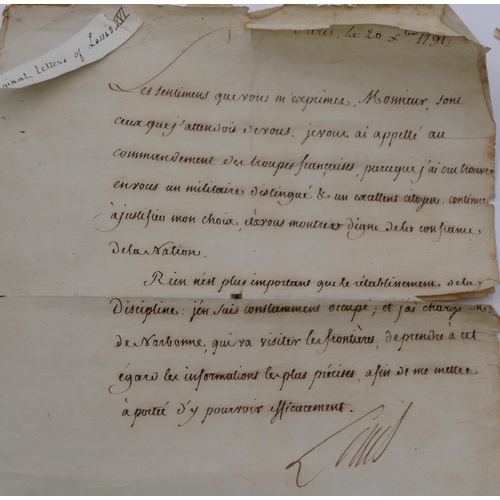 original Letters of Louis XVI
Paris, le 20 Xbre 1791.
Les sentimens que vous m'exprimez, Monsieur, sont
ceux que j'attendois de vous. je vous ai appellé au
commandement des troupes françaises, parceque j'ai cru trouver
en vous un militaire distingué & un excellent citoyen. continuez
à justifier mon choix, & à vous montrer digne de la confiance
de la Nation.
Rien n'est plus important que le rétablissement de la
Discipline: j'en suis constamment occupé; et j'ai chargé M.
de Narbonne, qui va visiter les frontières, de prendre à cet
égard les informations les plus précises, afin de me mettre
à portée d'y pourvoir efficacement.
Louis